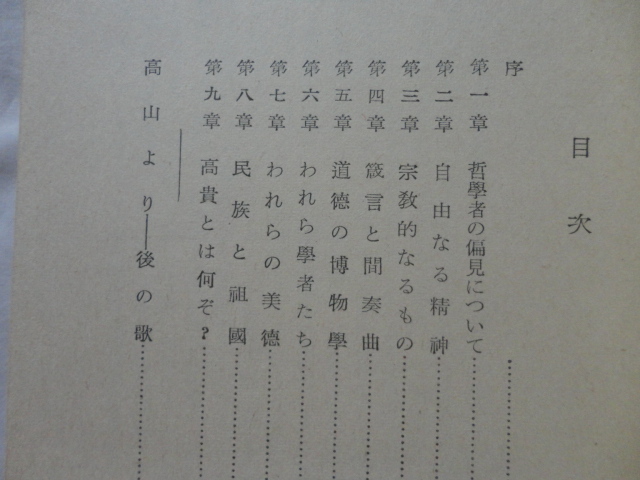 目次
序
第一章 哲學者の偏見について
第二章 自由なる精神
第三章 宗敎的なるもの
第四章 箴言と間奏曲
第五章 道德の博物學
第六章 われら學者たち
第七章 われらの美德
第八章 民族と祖國
第九章 高貴とは何ぞ?
高山より——後の歌